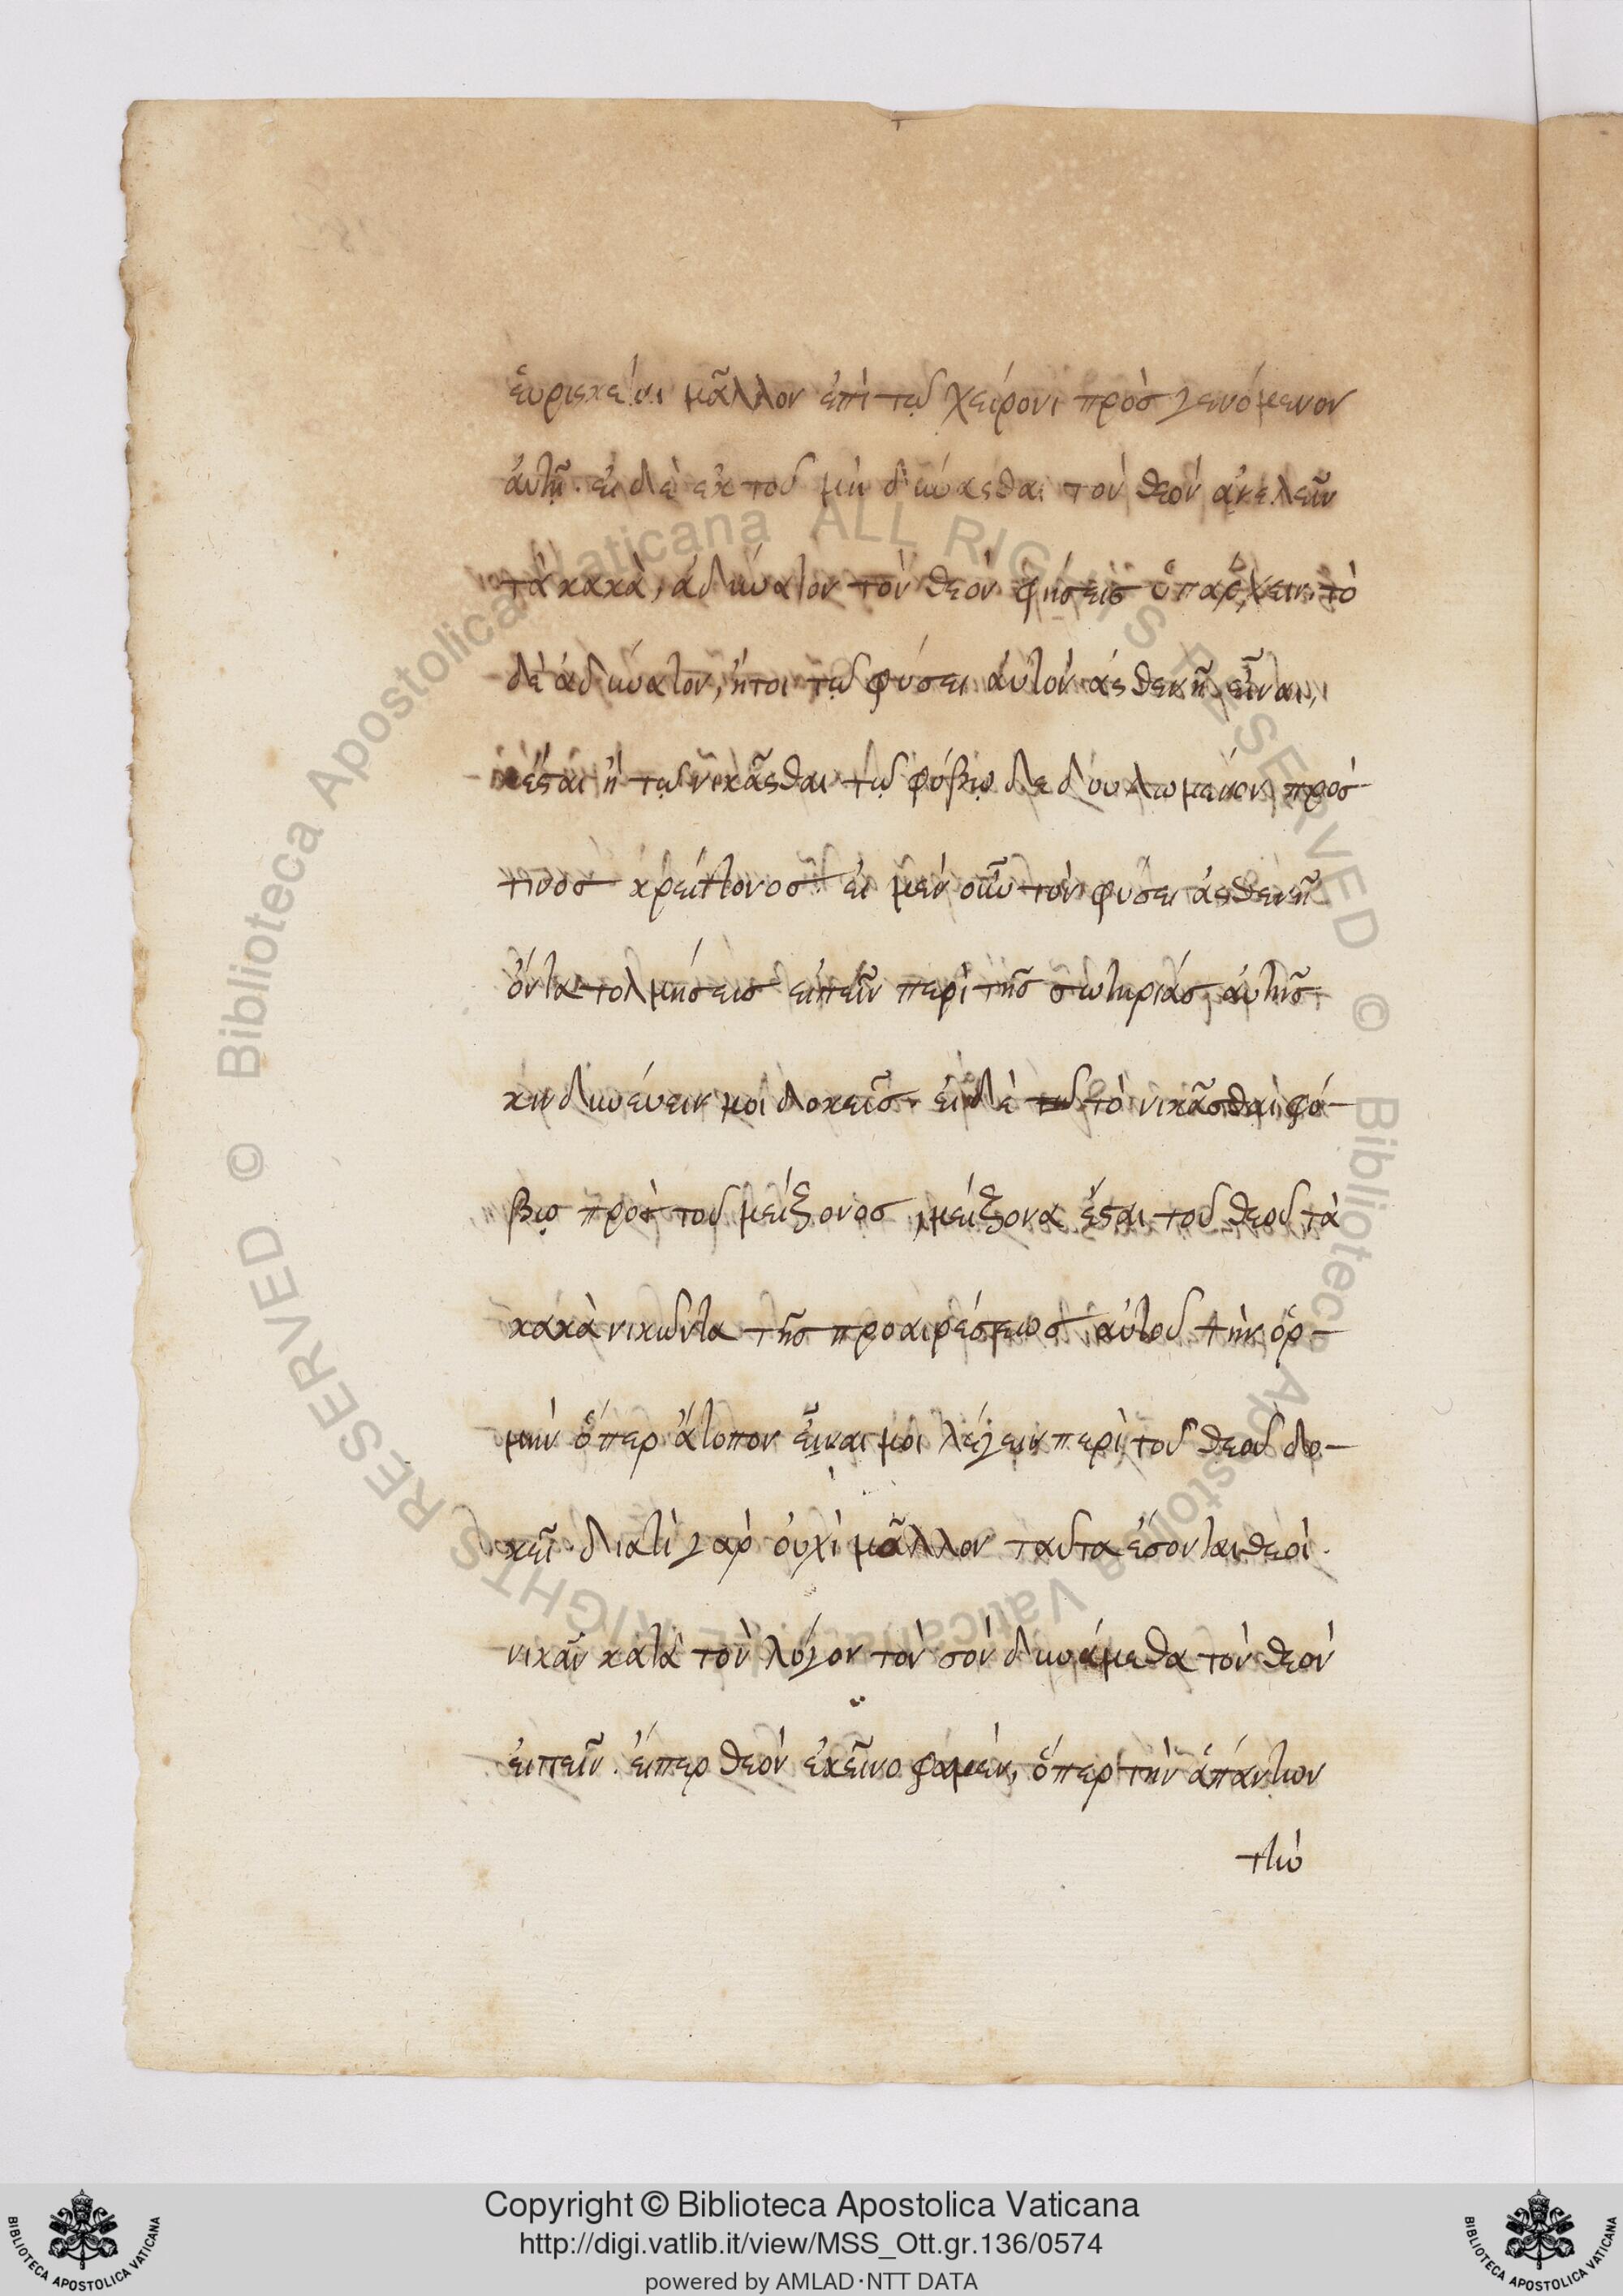 εὑρίσκεται μᾶλλον ἐπὶ τῷ χείρονι πρὸσγενόμενον
ἀυτῇ. ἐι δὲ ἐκ τοῦ μὴ δύνασθαι τὸν θεὸν ἀνελεῖν
τὰ κακὰ, ἀδύνατον τὸν θεὸν φήσεις ὑπάρχειν. τὸ
δὲ ἀδύνατον, ἤτοι τῷ φύσει ἀυτὸν ἀσθενῆ εἶναι,
ἔσται ἢ τῷ νικᾶσθαι τῷ φόβῳ δεδουλωμένον πρός
τινος κρείττονος. ἐι μὲν οὖν τὸν φύσει ἀσθενῆ
ὄντα τολμήσεις ειπεῖν περὶ τῆς σωτηρίάς ἀυτῆς
κινδυνέυειν μοὶ δοκεῖς. ἐι δὲ τὸ νικᾶσθαι φό-
βῳ πρὸς τοῦ μείζονος μείζονα ἔσται τοῦ θεοῦ τὰ
κακὰ νικῶντα τῆς προαιρέσεως ἀυτοῦ τὴν ὁρ-
μὴν ὅπερ ἄτοπον εἶναι μοι λέγειν περὶ τοῦ θεοῦ δο-
κεῖ. διατὶ γὰρ ὀυχὶ μᾶλλον ταῦτα ἔσονται θεοὶ.
νικᾶν κατὰ τὸν λόγον τὸν σὸν δυνάμεθα τὸν θεὸν
ἐιπεῖν. ἐίπερ θεὸν ἐκεῖνο φαμὲν, ὅπερ τὴν ἁπάντων
τὴν
Copyright © Biblioteca Apostolica Vaticana
http://digi.vatlib.it/view/MSS_Ott.gr.136/0574
powered by AMLAD·NTT DATA
BIBLIOTECA APOSTOLICA VATICANA
BIBLIOTECA APOSTOLICA VATICANA
© Biblioteca Apostolica Vaticana ALL RIGHTS RESERVED © Biblioteca Apostolica Vaticana ALL RIGHTS RESERVED